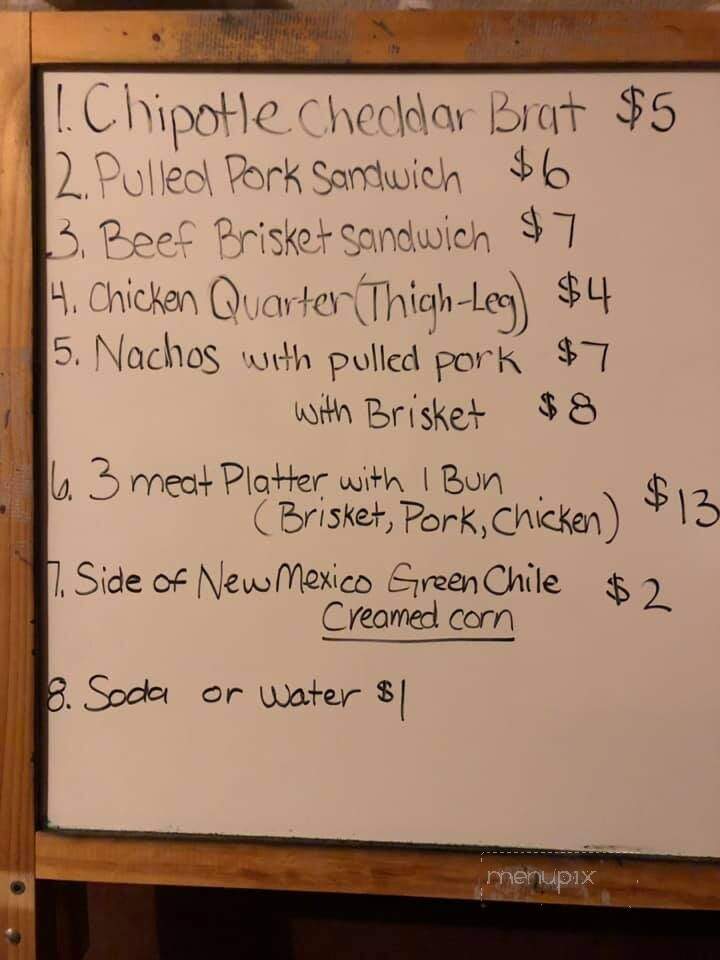 1. Chipotle Cheddar Brat $5
2. Pulled Pork Sandwich $6
3. Beef Brisket Sandwich $7
4. Chicken Quarter (Thigh-Leg) $4
5. Nachos with pulled pork $7
with Brisket $8
6. 3 meat Platter with 1 Bun
(Brisket, Pork, Chicken) $13
7. Side of New Mexico Green Chile $2
Creamed corn
8. Soda or Water $1
menupix